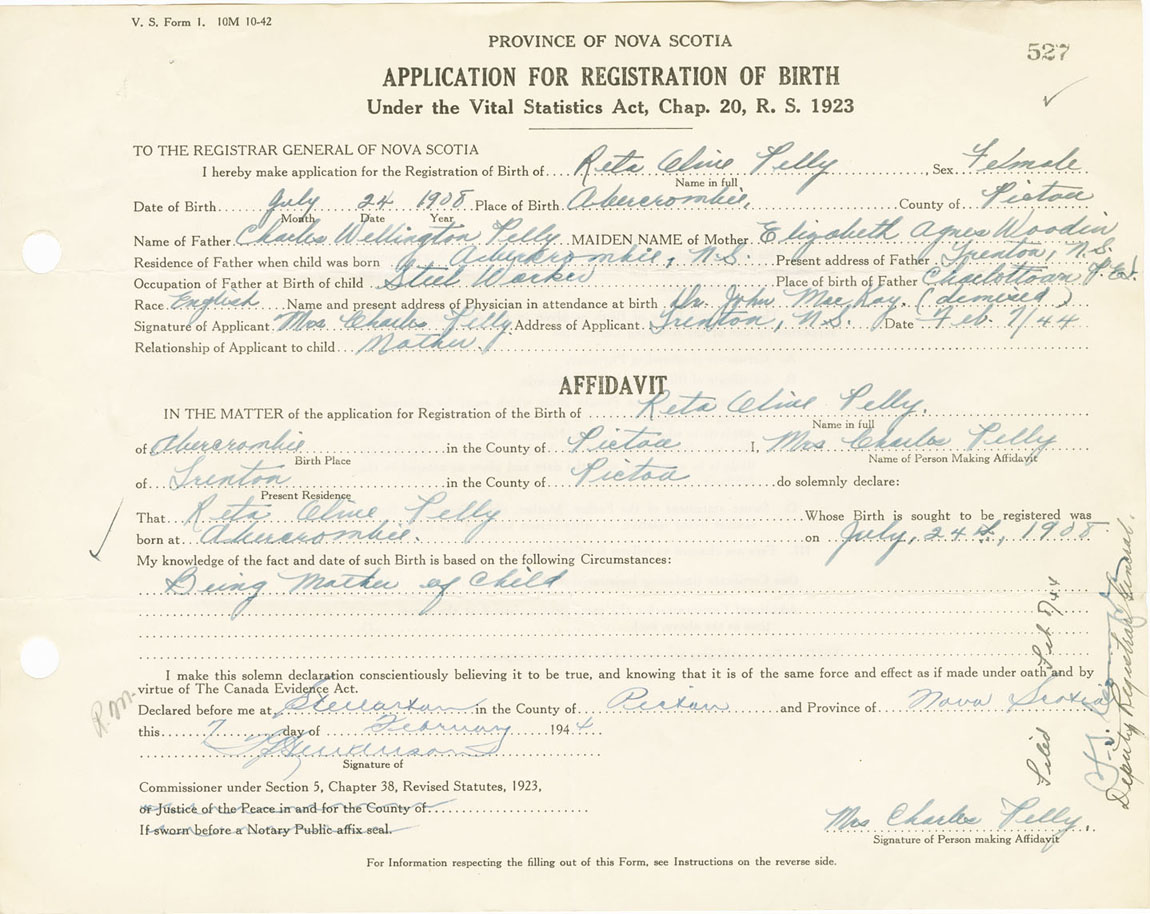 V. S. Form 1. 10M 10-42
PROVINCE OF NOVA SCOTIA
527
APPLICATION FOR REGISTRATION OF BIRTH
Under the Vital Statistics Act, Chap. 20, R. S. 1923
TO THE REGISTRAR GENERAL OF NOVA SCOTIA
I hereby make application for the Registration of Birth of Reta Oline Pelly Sex Female
Name in full
Date of Birth July 24 1908 Place of Birth Abercrombie, County of Pictou
Month Date Year
Name of Father Charles Wellington Pelly MAIDEN NAME of Mother Elizabeth Agnes Woodin
Residence of Father when child was born Abercrombie, N.S. Present address of Father Trenton, N.S
Occupation of Father at Birth of child Steel Worker Place of birth of Father Charlottown P.E.I.
Race English Name and present address of Physician in attendance at birth Dr. John MacKay. (demised)
Signature of Applicant Mrs Charles Pelly Address of Applicant Trenton, N.S. Date Feb. 7/44
Relationship of Applicant to child Mother.
AFFIDAVIT
IN THE MATTER of the application for Registration of the Birth of Reta Oline Pelly.
Name in full
of Abercrombie in the County of Pictou I, Mrs Charles Pelly
Birth Place Name of Person Making Affidavit
of Trenton in the County of Pictou do solemnly declare:
Present Residence
That Reta Oline Pelly Whose Birth is sought to be registered was
born at Abercrombie. on July, 24th, 1908
My knowledge of the fact and date of such Birth is based on the following Circumstances:
Being Mother of Child
I make this solemn declaration conscientiously believing it to be true, and knowing that it is of the same force and effect as if made under oath and by
virtue of The Canada Evidence Act.
R.M.
Declared before me at Stellarton in the County of Pictou and Province of Nova Scotia
this 7 day of February 1944
Signature of
Commissioner under Section 5, Chapter 38, Revised Statutes, 1923,
or Justice of the Peace in and for the County of
If sworn before a Notary Public affix seal.
Mrs Charles Pelly.
Signature of Person making Affidavit
For Information respecting the filling out of this Form, see Instructions on the reverse side.
Filed Feb 8/44
Deputy Registrar General.